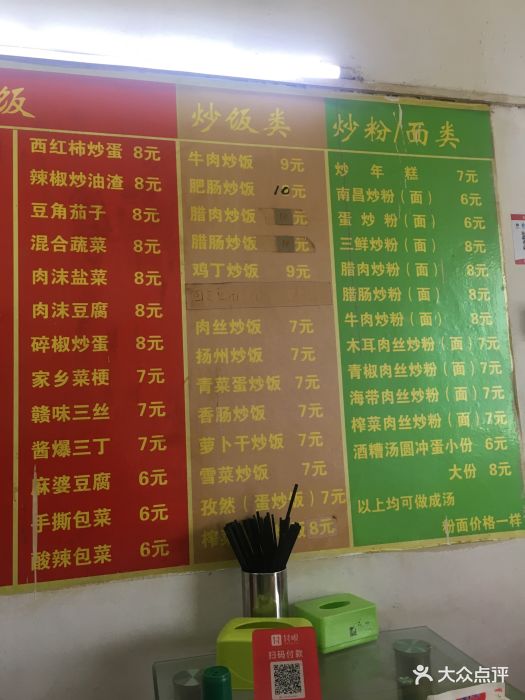 饭
西红柿炒蛋 8元
辣椒炒油渣 8元
豆角茄子 8元
混合蔬菜 8元
肉沫盐菜 8元
肉沫豆腐 8元
碎椒炒蛋 8元
家乡菜梗 7元
赣味三丝 7元
酱爆三丁 7元
麻婆豆腐 6元
手撕包菜 6元
酸辣包菜 6元
炒饭类
牛肉炒饭 9元
肥肠炒饭 10元
腊肉炒饭 元
腊肠炒饭 元
鸡丁炒饭 9元
肉丝炒饭 7元
扬州炒饭 7元
青菜蛋炒饭 7元
香肠炒饭 7元
萝卜干炒饭 7元
雪菜炒饭 7元
孜然（蛋炒饭）7元
榨菜 饭 8元
炒粉/面类
炒年糕 7元
南昌炒粉（面） 6元
蛋炒粉（面） 6元
三鲜炒粉（面） 8元
腊肉炒粉（面） 8元
腊肠炒粉（面） 8元
牛肉炒粉（面） 8元
木耳肉丝炒粉（面）7元
青椒肉丝炒粉（面）7元
海带肉丝炒粉（面）7元
榨菜肉丝炒粉（面）7元
酒糟汤圆冲蛋小份 6元
大份 8元
以上均可做成汤
粉面价格一样
扫码付款
大众点评